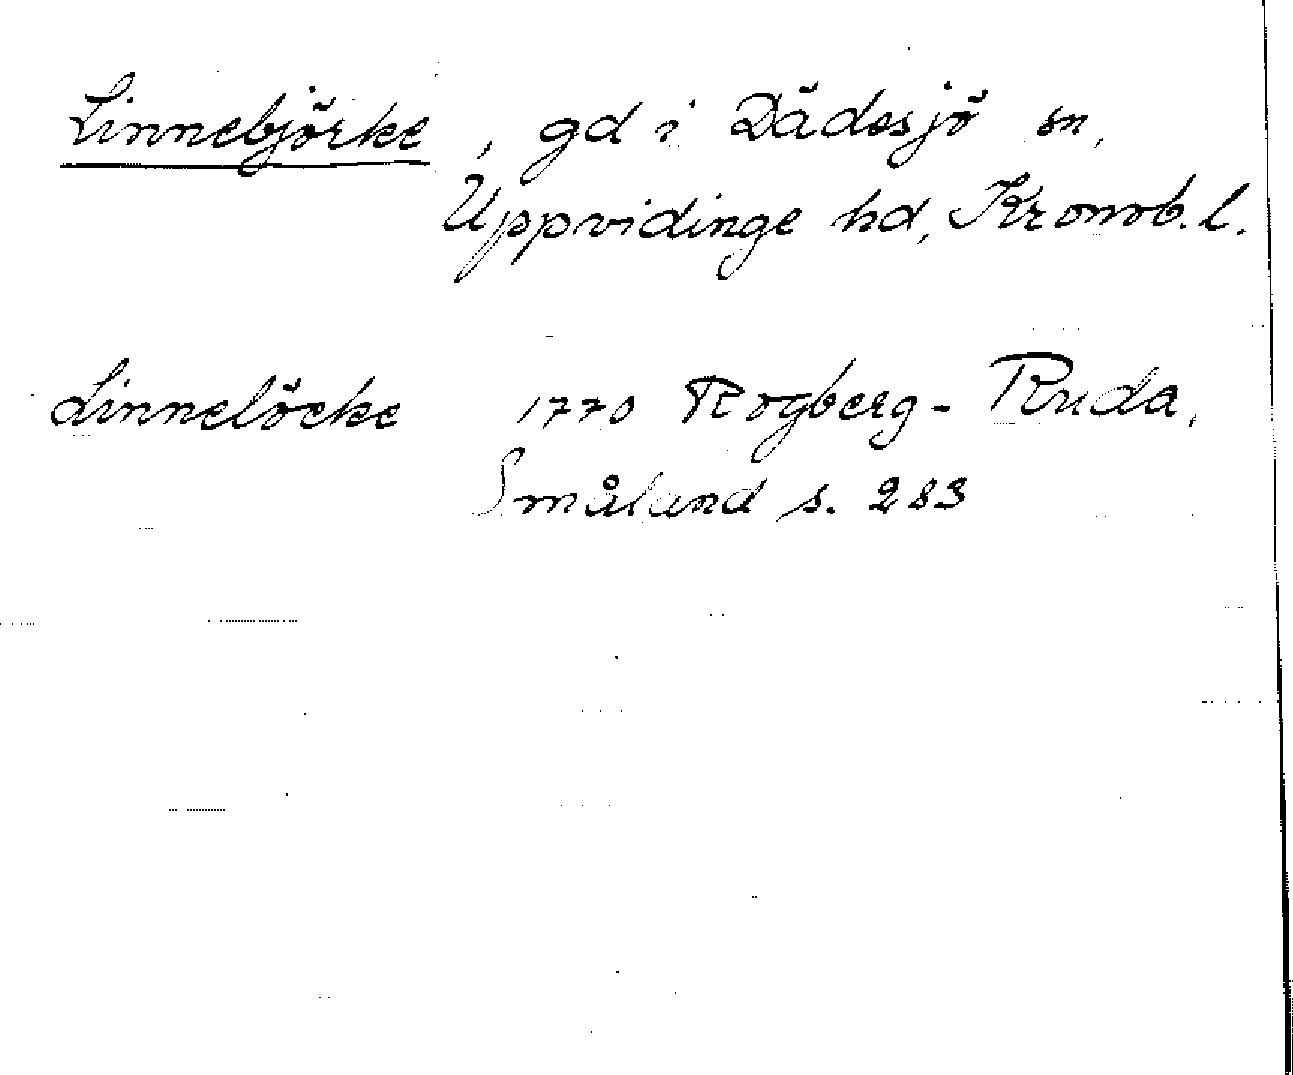 Linnebjörke, gd i Dädesjö sn,
Uppvidinge hd, Kronob. l.
Linnelöcke 1770 Rogberg - Ruda,
Småland s. 283